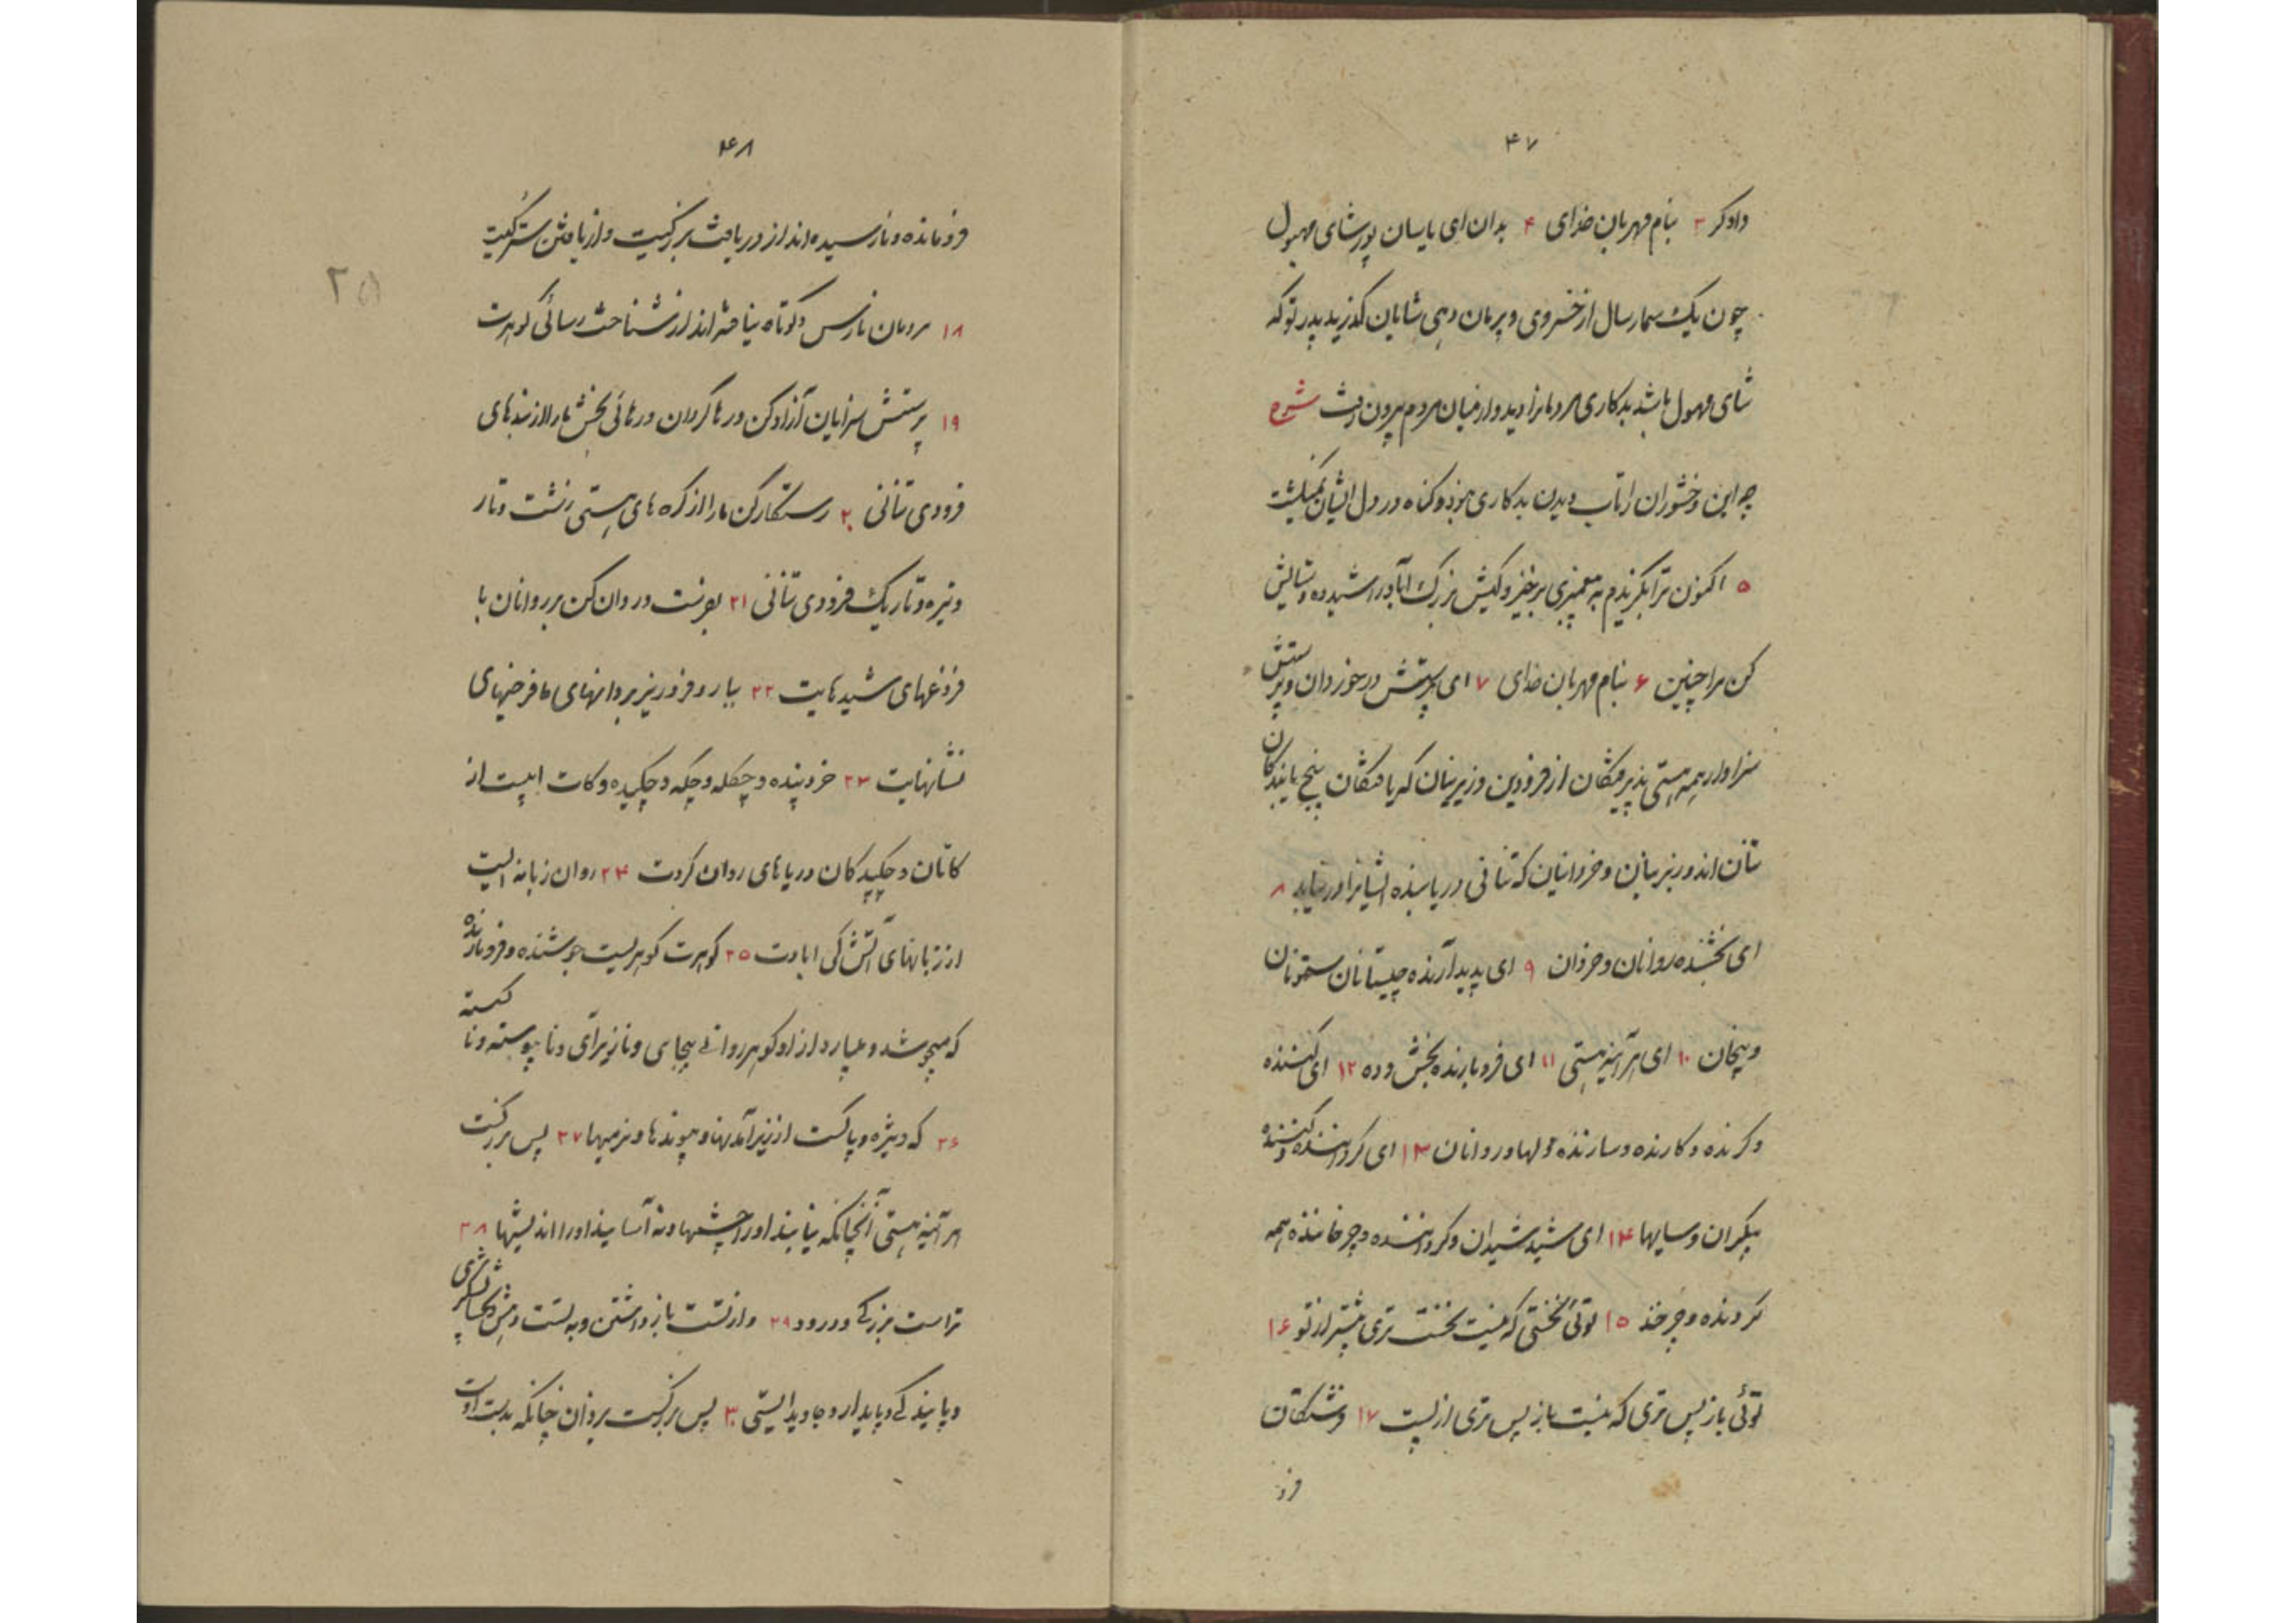 ۴۷
دادگر ۳ بنام مهربان خدای ۴ بدان ای یاسان پور شای مهبول
چون یک سمار سال از خسروی و پرمان دهی شایان گذرید پدر تو که
شای مهبول باشد بدکاری مردمانرا دید و از میان مردم بیرون رفت شرح
چه این وخشوران را تاب دیدن بدکاری نبود و گناه در دل ایشان نمیگشت
۵ اکنون ترا بگزیدم به پیغمبری برخیز و کیش بزرگ آباد را شید ده و ستایش
کن مرا چنین ۶ بنام مهربان خدای ۷ ای پرستش در خور دان و پرستش
سزاوار همه هستی پذیرفتگان از فرودین و زیرینان که یافتگان پنج یابندگان
تنان اند و زبرینان و خردانیان که تنانی دریابنده ایشانرا در نیابد ۸
ای بخشنده روانان و خردان ۹ ای پدید آرنده چیستانان ستونان
و بیخان ۱۰ ای هرآینه هستی ۱۱ ای فرو بارنده بخش و ده ۱۲ ای کننده
و کرنده و کارنده و سازنده دلها و روانان ۱۳ ای گرداننده و کننده
پیکران و سایها ۱۴ ای شید شیدان و گرداننده و چرخاننده همه
گردنده و چرخند ۱۵ توئی نخستی که نیست نخست تری پیشتر از تو ۱۶
توئی باز پس تری که نیست باز پس تری از پست ۱۷ فرشتگان
فرو
۴۸
فرو مانده و نارسیده اند از دریافت بزرگیت و از یافتن سترگیت
۱۸ مردمان نارس و کوتاه نیافته اند از شناخت رسائی گوهرت
۱۹ پرستش سزایان آزاد کن و رها گردان و رهائی بخش ما را از بندهای
فرودی تنانی ۲۰ رستگار کن ما را از گره های هستی زشت و تار
و تیره و تاریک فرودی تنانی ۲۱ بفرست و روان کن بر روانان با
فروغهای شیدهایت ۲۲ ببار و فرو ریز بر روانهای ما فرخیهای
نشانهایت ۲۳ خرد پنده و چکله و چکه و چکیده و کات ایست از
کاتان و چکیدگان دریاهای روان گردت ۲۴ روان زبانه ایست
از زبانهای آتش کی ابادت ۲۵ گوهرت گوهریست جوشنده و فرو بارنده
که میجوشد و میبارد از او گوهر روانی بیجای و نازیرآی و نا پیوسته و نا گسسته
۲۶ که ویژه و پاکست از زیر آمدنها و پیوندها و نرمیها ۲۷ پس بزرگست
هرآینه هستی آنچنانکه نیابند او را چشمها و نه آسایند او را اندیشها ۲۸
تراست بزرگی و درود ۲۹ و از تست باز داشتن و به تست دهش و
و پایندگی و پایدار و جاوید ایستی ۳۰ پس بزرگست یزدان چنانکه بدست اوست